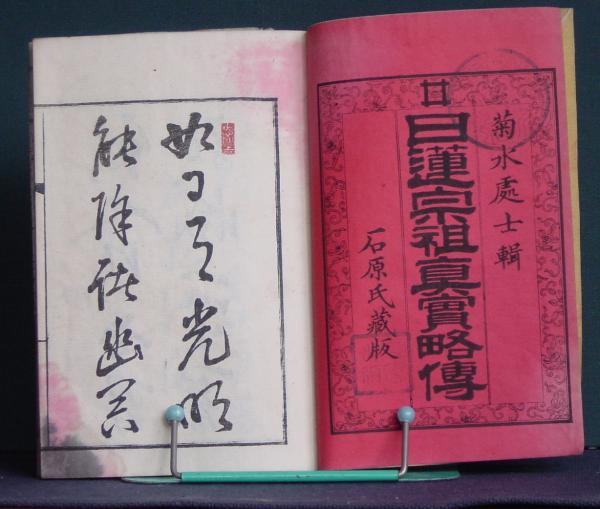 菊水處士輯
廿日蓮宗祖真實略傳
石原氏藏版
如日月光明
能除諸幽冥